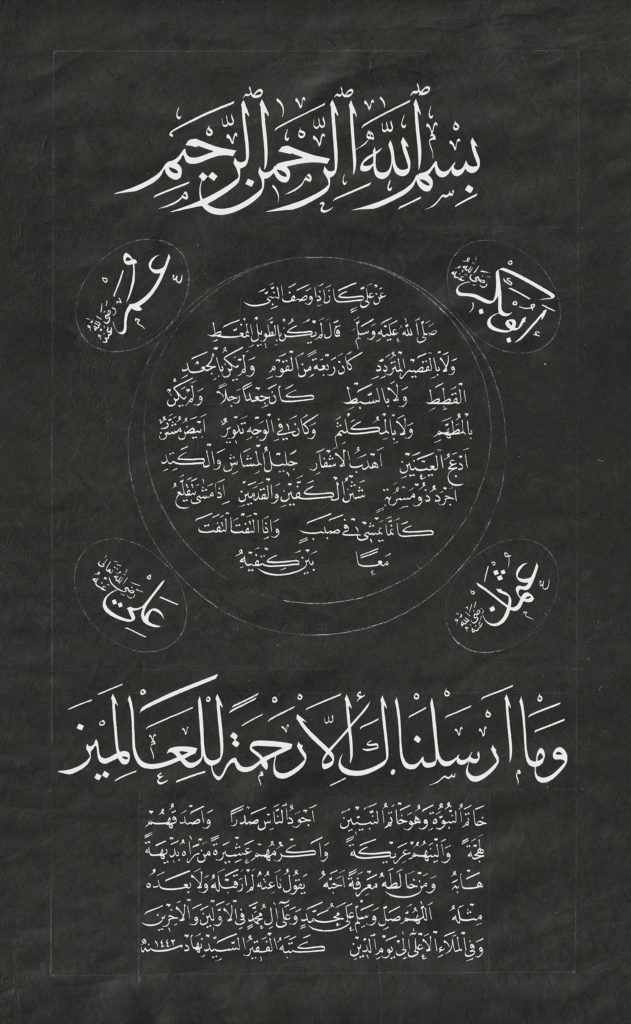 بِسْمِ اللّٰهِ الرَّحْمٰنِ الرَّحِيمِ
ابوبكر رضي الله عنه
عمر رضي الله عنه
عن علي كان اذا وصف النبي
صلى الله عليه وسلم قال لم يكن بالطويل الممغط
ولا بالقصير المتردد كان ربعة من القوم ولم يكن بالجعد
القطط ولا بالسبط كان جعدا رجلا ولم يكن
بالمطهم ولا بالمكلثم وكان في الوجه تدوير ابيض مشرب
ادعج العينين اهدب الاشفار جليل المشاش والكتد
اجرد ذو مسربة شثن الكفين والقدمين اذا مشى يتقلع
كانما يمشي في صبب واذا التفت التفت
معا بين كتفيه
عثمان رضي الله عنه
علي رضي الله تعالى عنه
وَمَا اَرْسَلْنَاكَ اِلَّا رَحْمَةً لِلْعَالَمِينَ
خاتم النبوة وهو خاتم النبيين اجود الناس صدرا واصدقهم
لهجة والينهم عريكة واكرمهم عشيرة من راه بديهة
هابه ومن خالطه معرفة احبه يقول ناعته لم ار قبله ولا بعده
مثله اللهم صل وسلم على محمد وعلى ال محمد في الاولين والاخرين
وفي الملاء الاعلى الى يوم الدين كتبه الفقير السيد نهاد سنه ١٤٤٢